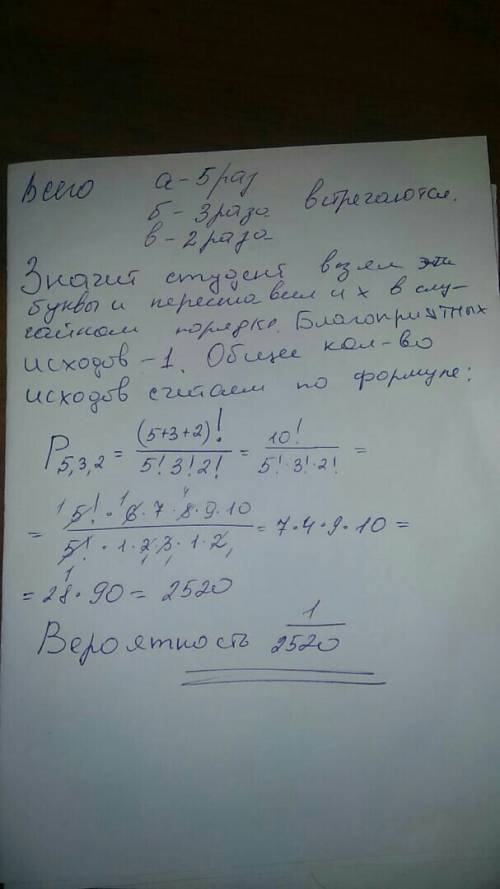 Всего а - 5 раз
б - 3 раза встречаются.
в - 2 раза
Значит студент взял эти
буквы и переставил их в слу-
чайном порядке. Благоприятных
исходов - 1. Общее кол-во
исходов считаем по формуле:
P5,3,2 = (5+3+2)! / 5! 3! 2! = 10! / 5! · 3! · 2! =
= 5! · 6 · 7 · 8 · 9 · 10 / 5! · 1 · 2 · 3 · 1 · 2 = 7 · 4 · 9 · 10 =
= 28 · 90 = 2520
Вероятность 1/2520